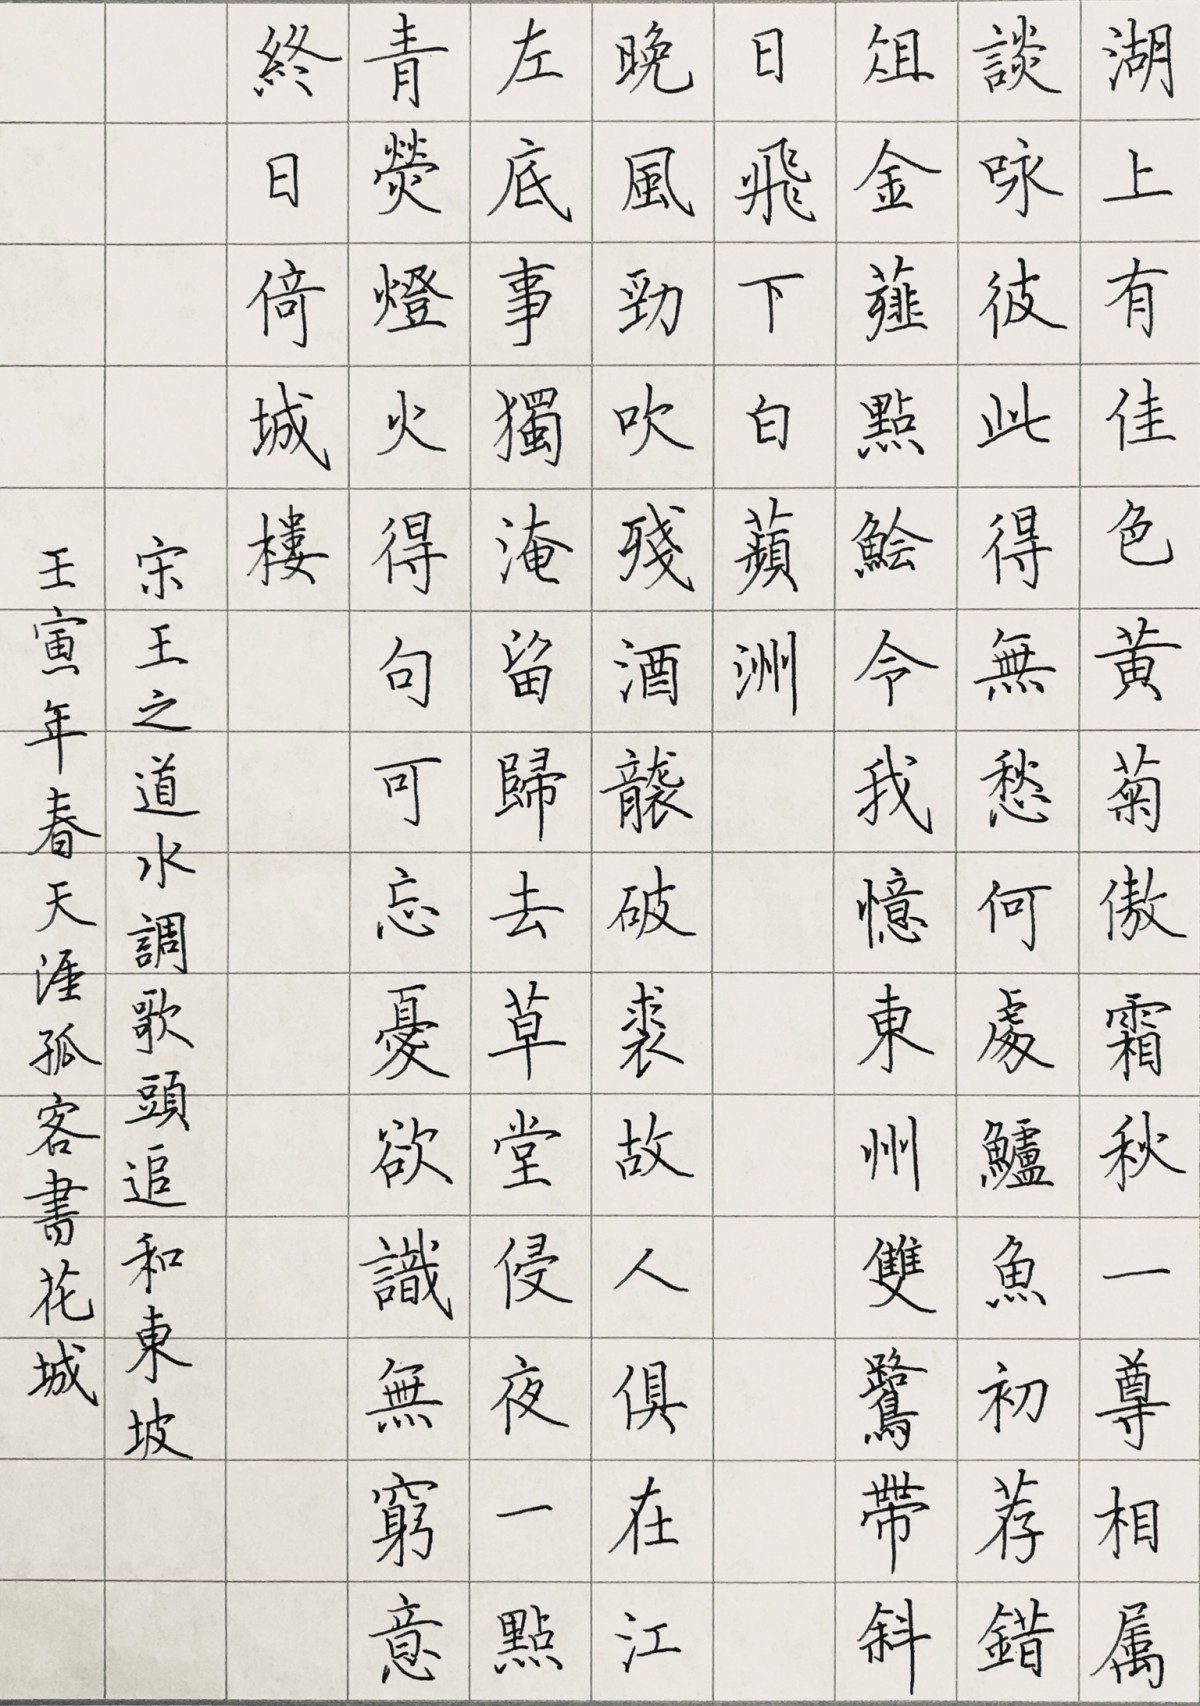 湖上有佳色黄菊傲霜秋一尊相属
談咏彼此得無愁何處鱸魚初荐錯
俎金薤點鱠令我憶東州雙鷺帶斜
日飛下白蘋洲
晚風勁吹殘酒襲破裘故人俱在江
左底事獨淹留歸去草堂侵夜一點
青熒燈火得句可忘憂欲識無窮意
終日倚城樓
宋王之道水調歌頭追和東坡
壬寅年春天涯孤客書花城